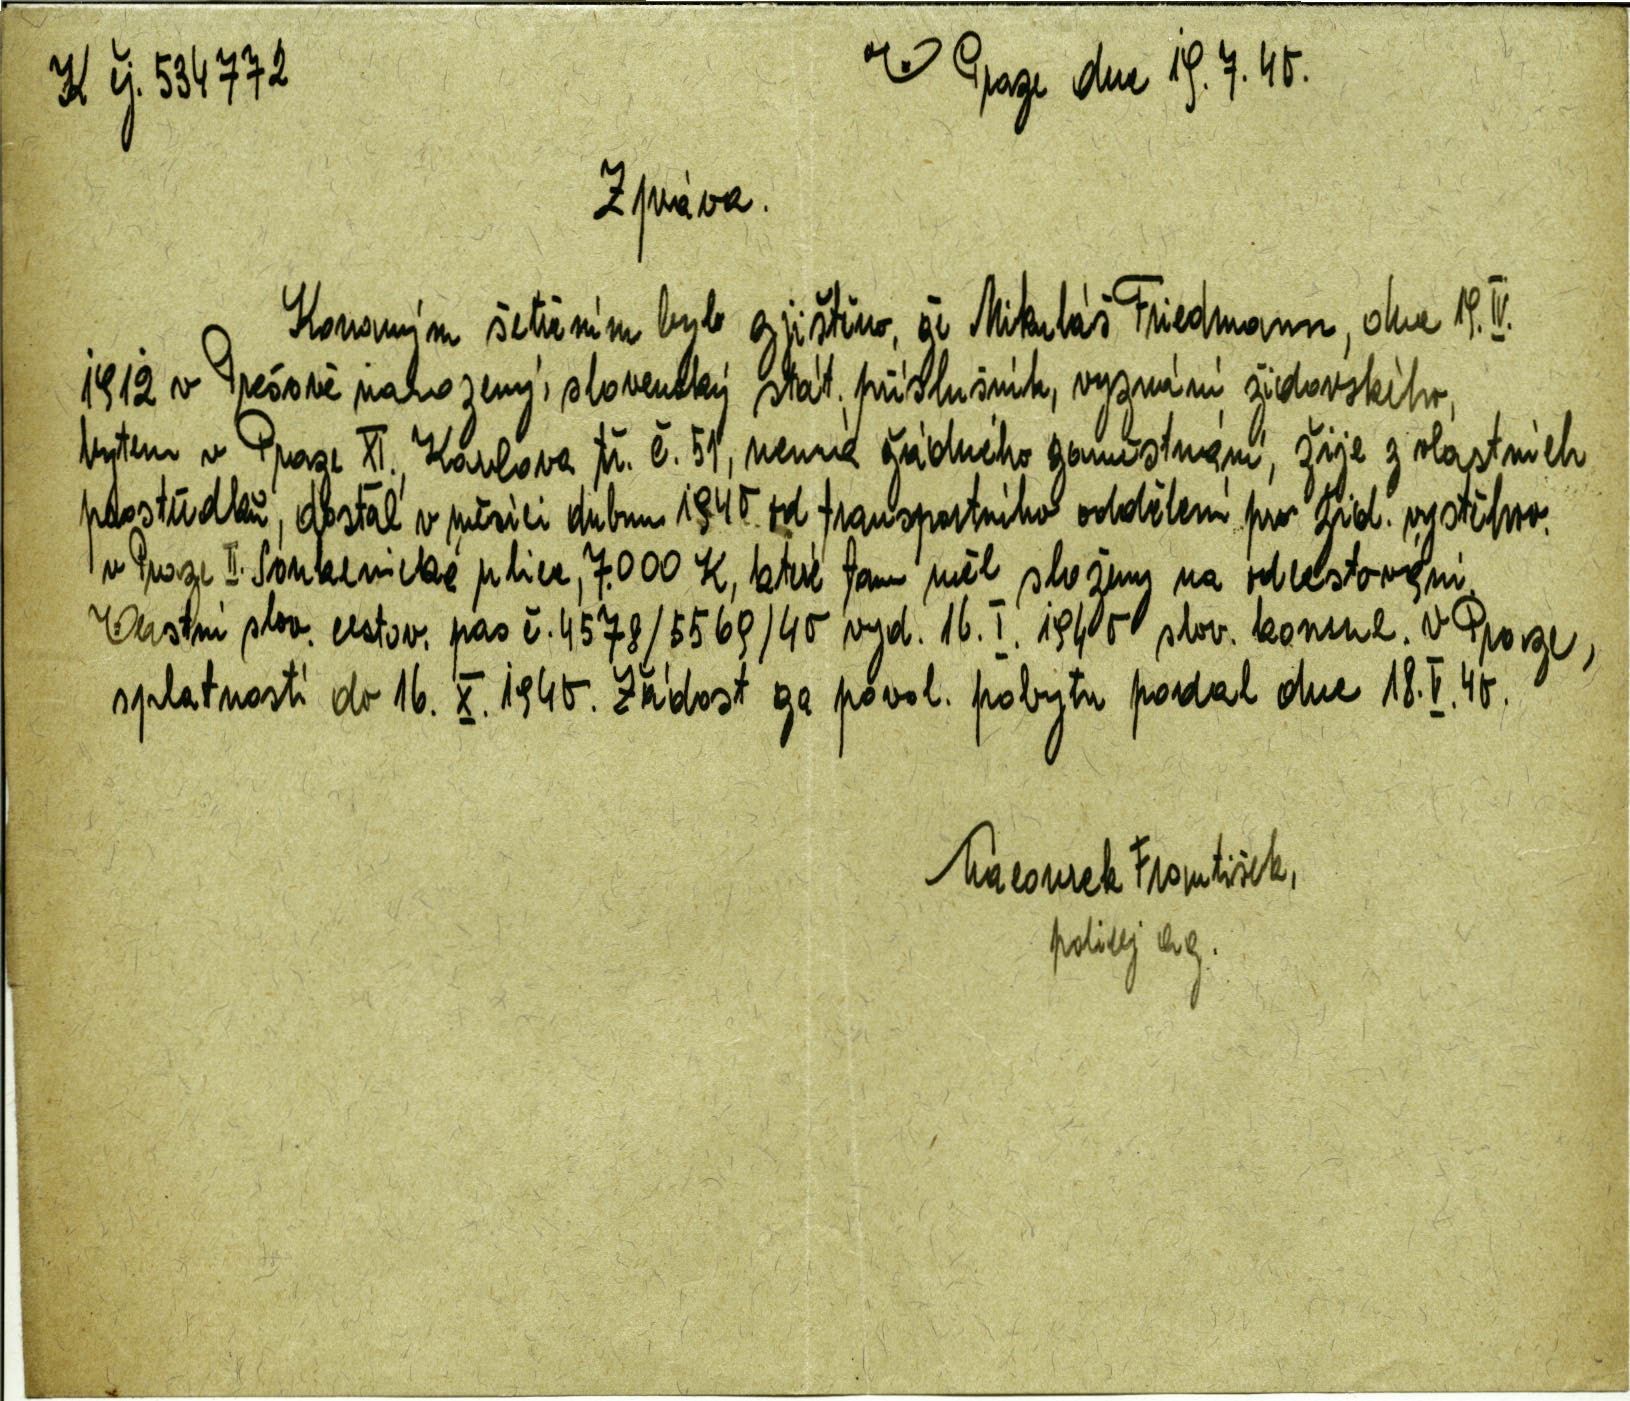 K čj. 534772
V Praze dne 19.7.40.
Zpráva.
Konaným šetřením bylo zjištěno, že Mikuláš Friedmann, dne 19.IV.
1912 v Prešově narozený, slovenský stát. příslušník, vyznání židovského,
bytem v Praze XI., Karlova tř. č. 51, nemá žádného zaměstnání, žije z vlastních
prostředků, dostal v měsíci dubnu 1940 od transportního oddělení pro žid. vystěhov.
v Praze II. Soukenická ulice, 7.000 K, které tam měl složeny na odcestování.
Vlastní slov. cestov. pas č. 4578/5569/40 vyd. 16.I.1940 slov. konsul. v Praze,
s platností do 16.X.1940. Žádost za povol. pobytu podal dne 18.V.40.
František,
policej ag.